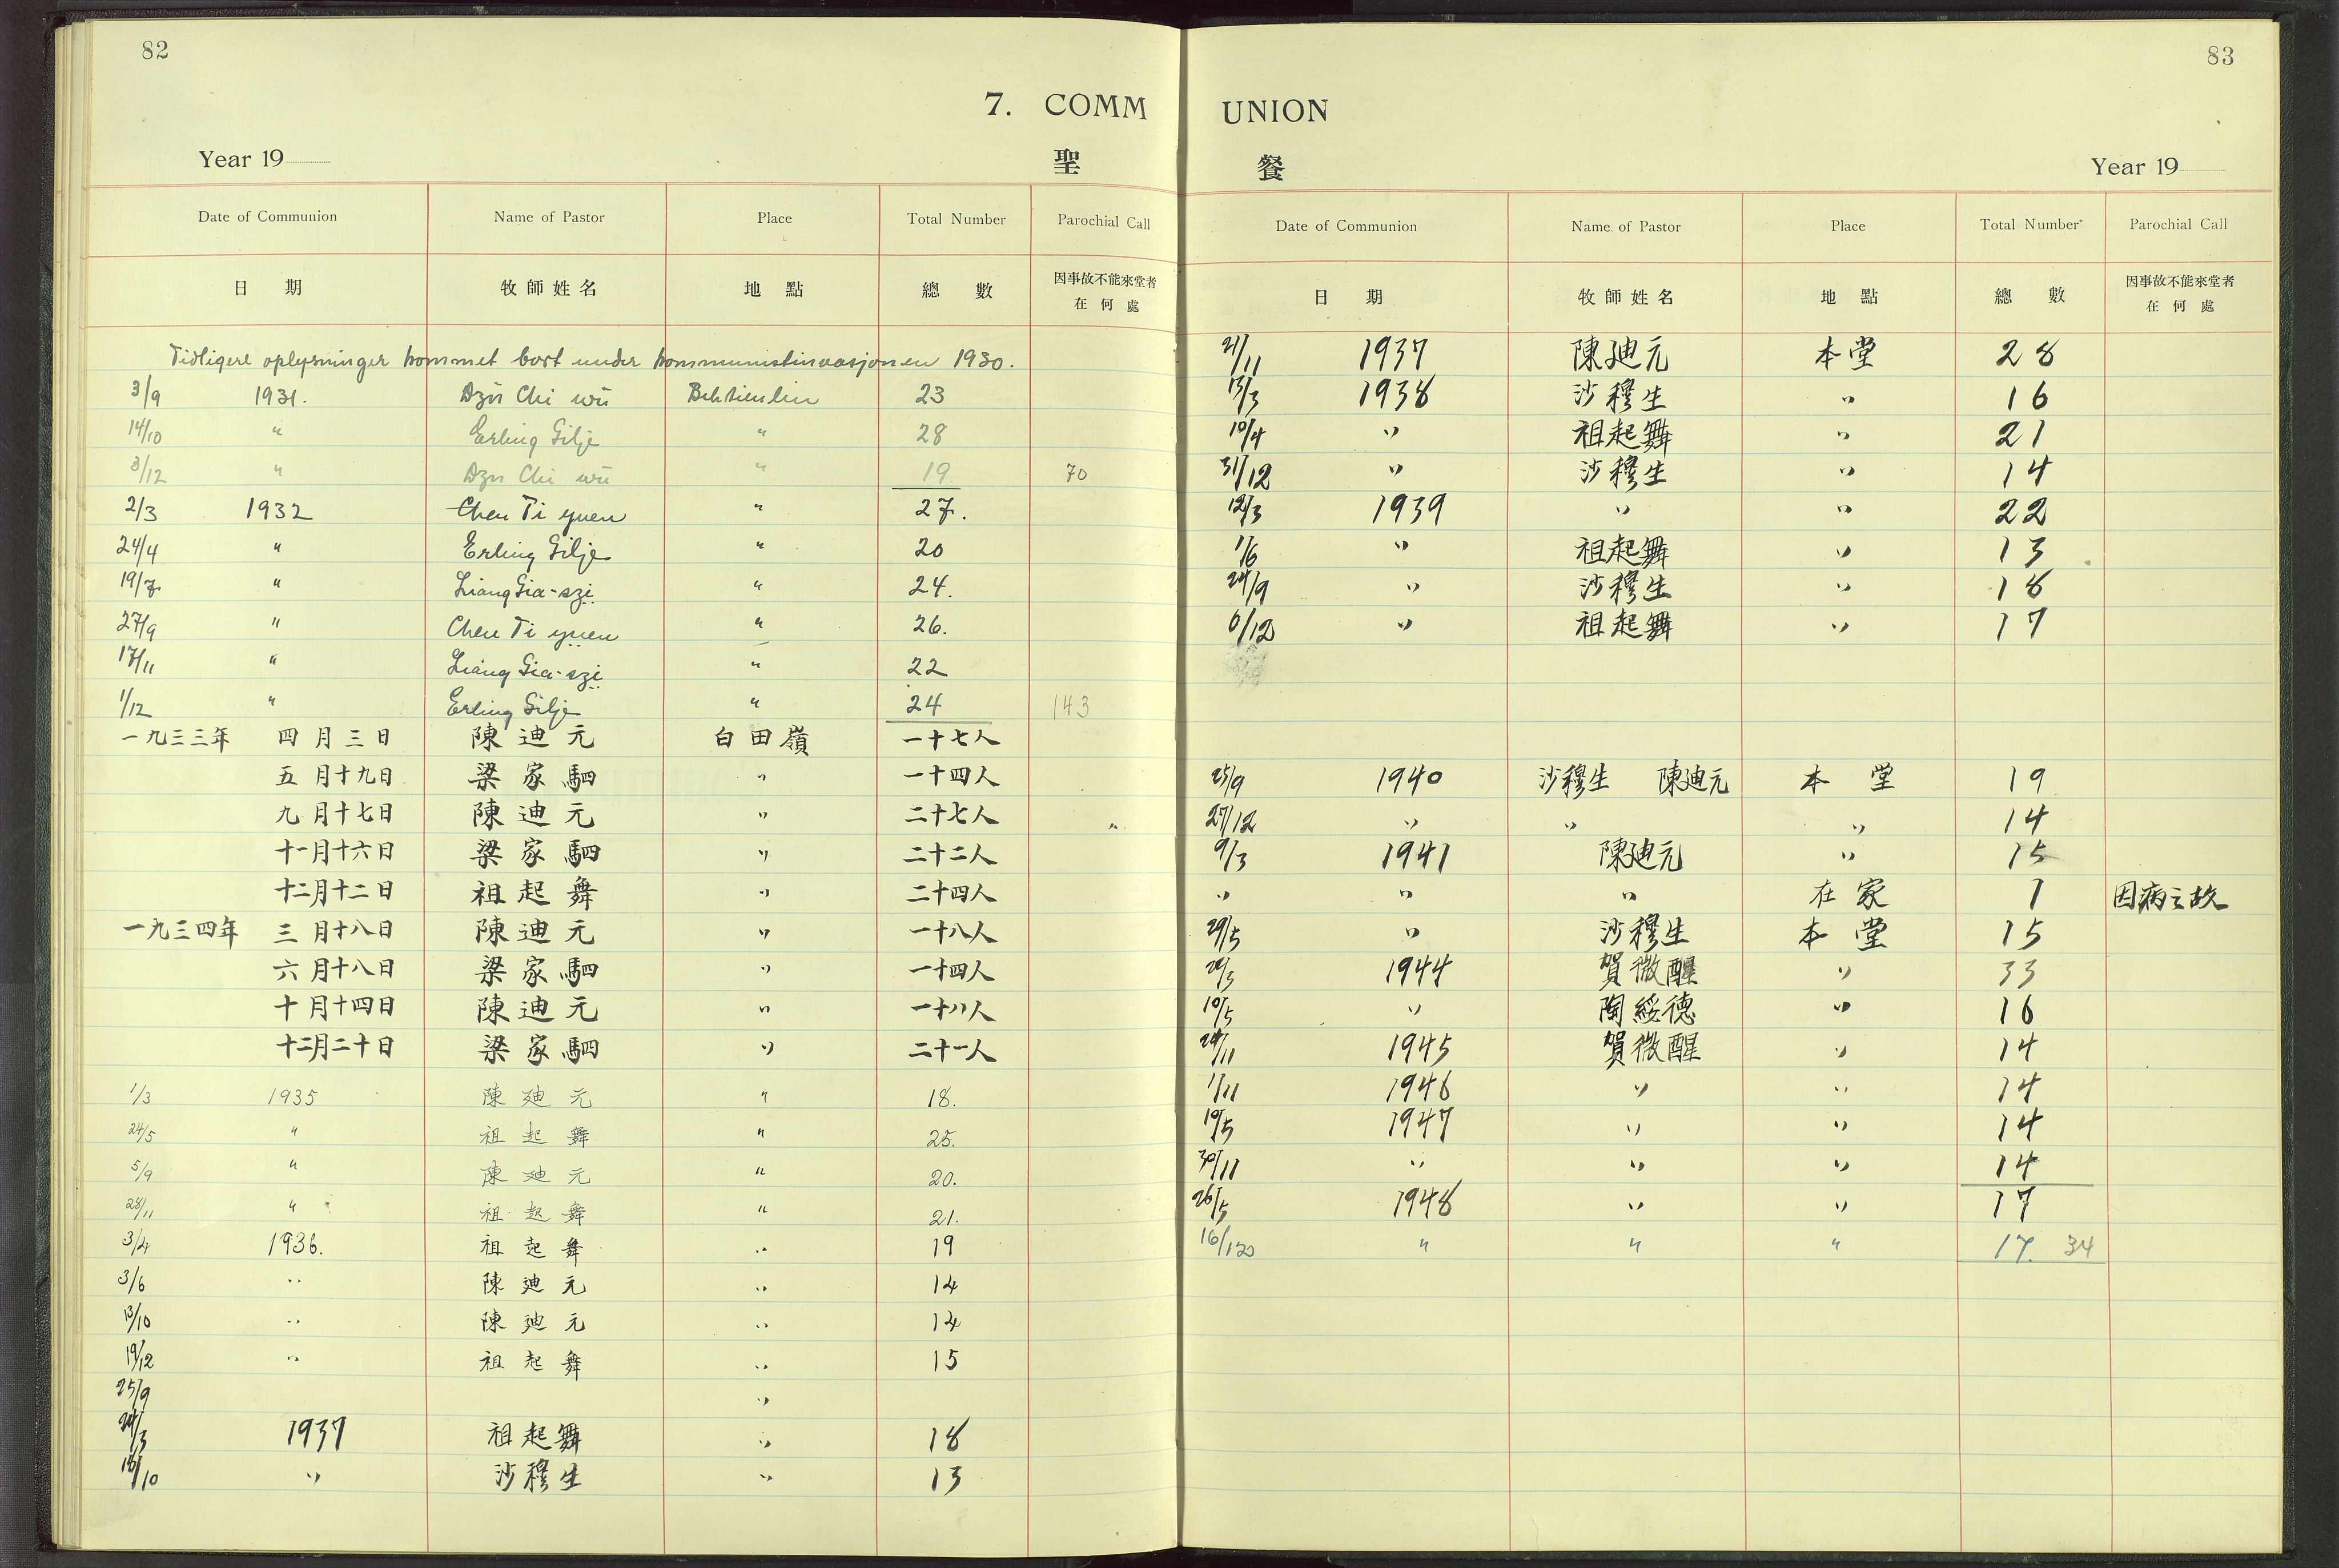 82
7. COMM
Year 19
聖
Date of Communion Name of Pastor Place Total Number Parochial Call
日期 牧師姓名 地點 總數 因事故不能來堂者在何處
Tidligere oplysninger kommet bort under kommunistinvasjonen 1930.
3/9 1931. Dzü Chi wü Behtienlin 23
14/10 " Erling Gilje " 28
3/12 " Dzü Chi wü " 19 70
2/3 1932 Chen Ti yuen " 27.
24/4 " Erling Gilje " 20
19/7 " Liang Gia-szi " 24.
27/9 " Chen Ti yuen " 26.
17/11 " Liang Gia-szi " 22
1/12 " Erling Gilje " 24 143
一九三三年 四月三日 陳迪元 白田嶺 一十七人
五月十九日 梁家駟 〃 一十四人
九月十七日 陳迪元 〃 二十七人
十一月十六日 梁家駟 〃 二十二人
十二月十二日 祖起舞 〃 二十四人
一九三四年 三月十八日 陳迪元 〃 一十八人
六月十八日 梁家駟 〃 一十四人
十月十四日 陳迪元 〃 一十八人
十二月二十日 梁家駟 〃 二十一人
1/3 1935 陳廸元 " 18.
24/5 " 祖起舞 " 25.
5/9 " 陳廸元 " 20.
28/11 " 祖起舞 " 21.
3/4 1936. 祖起舞 〃 19
3/6 〃 陳廸元 〃 14
13/10 〃 陳廸元 〃 14
19/12 〃 祖起舞 〃 15
25/9 〃
24/3 1937 祖起舞 〃 18
/10 〃 沙穆生 〃 13
83
UNION
餐
Year 19
Date of Communion Name of Pastor Place Total Number Parochial Call
日期 牧師姓名 地點 總數 因事故不能來堂者在何處
21/11 1937 陳廸元 本堂 28
13/3 1938 沙穆生 〃 16
10/4 〃 祖起舞 〃 21
31/12 〃 沙穆生 〃 14
12/3 1939 〃 〃 22
1/6 〃 祖起舞 〃 13
24/9 〃 沙穆生 〃 18
6/12 〃 祖起舞 〃 17
25/9 1940 沙穆生 陳廸元 本堂 19
27/12 〃 〃 〃 14
9/3 1941 陳廸元 〃 15
〃 〃 〃 在家 1 因病之故
29/5 〃 沙穆生 本堂 15
/3 1944 賀微醒 〃 33
10/5 〃 陶綏德 〃 16
/11 1945 賀微醒 〃 14
1/11 1946 〃 〃 14
19/5 1947 〃 〃 14
30/11 〃 〃 〃 14
26/5 1948 〃 〃 17
16/ " " " 17. 34